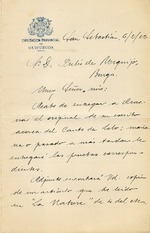 DIPUTACIÓN PROVINCIAL
DE
GUIPÚZCOA
San Sebastián, 6/2/23
Sr. D. Julio de Urquijo,
Burgos
Muy Señor mío:
Acabo de entregar a
el original de su escrito
acerca del Canto de Lelo; maña-
na o pasado a más tardar le
entregará las pruebas correspon-
dientes.
Adjunto encontrará Vd. copia
de un artículo que he leído
en "La Nature" de 4 del